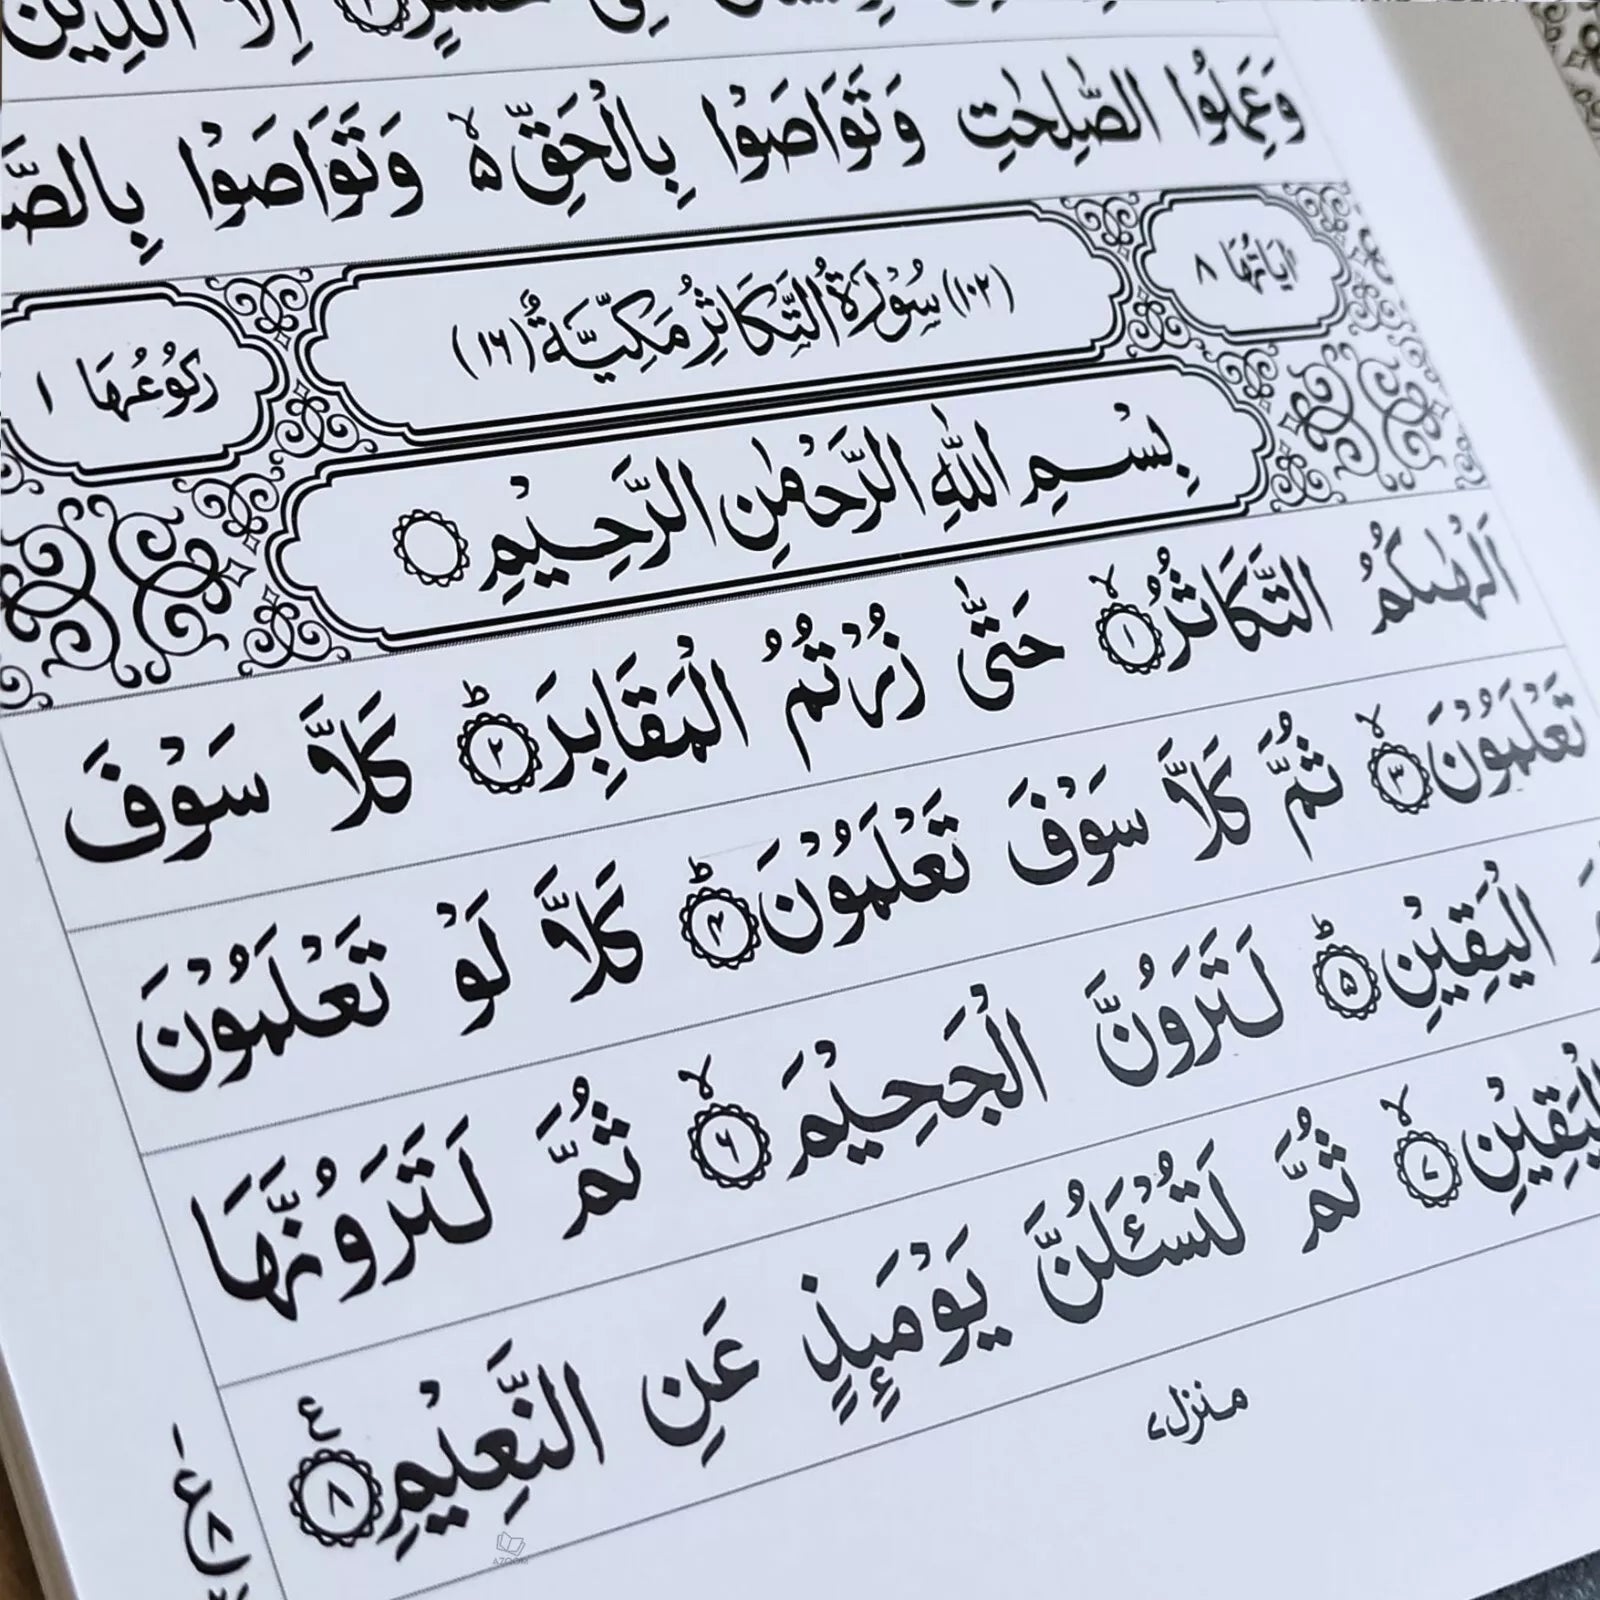 اِلَّا الَّذِيْنَ
وَعَمِلُوا الصّٰلِحٰتِ وَتَوَاصَوْا بِالْحَقِّ ۙ۬ وَتَوَاصَوْا
اٰيَاتُهَا ٨
(١٠٢) سُوْرَةُ التَّكَاثُرِ مَكِّيَّةٌ (١٦)
رُكُوْعُهَا ١
بِسْمِ اللّٰهِ الرَّحْمٰنِ الرَّحِيْمِ
اَلْهٰىكُمُ التَّكَاثُرُ ۙ ١ حَتّٰى زُرْتُمُ الْمَقَابِرَ ؕ ٢ كَلَّا سَوْفَ
تَعْلَمُوْنَ ۙ ٣ ثُمَّ كَلَّا سَوْفَ تَعْلَمُوْنَ ؕ ٤ كَلَّا لَوْ تَعْلَمُوْنَ
الْيَقِيْنِ ؕ ٥ لَتَرَوُنَّ الْجَحِيْمَ ۙ ٦ ثُمَّ لَتَرَوُنَّهَا
الْيَقِيْنِ ۙ ٧ ثُمَّ لَتُسْـَٔلُنَّ يَوْمَىِٕذٍ عَنِ النَّعِيْمِ ٨
ع
٨
منزل ٧
AZOOM